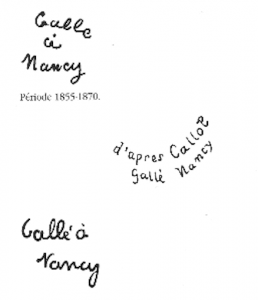 Galle
à
Nancy
Période 1855-1870.
d'apres Callot
Gallé Nancy
Gallé à
Nancy